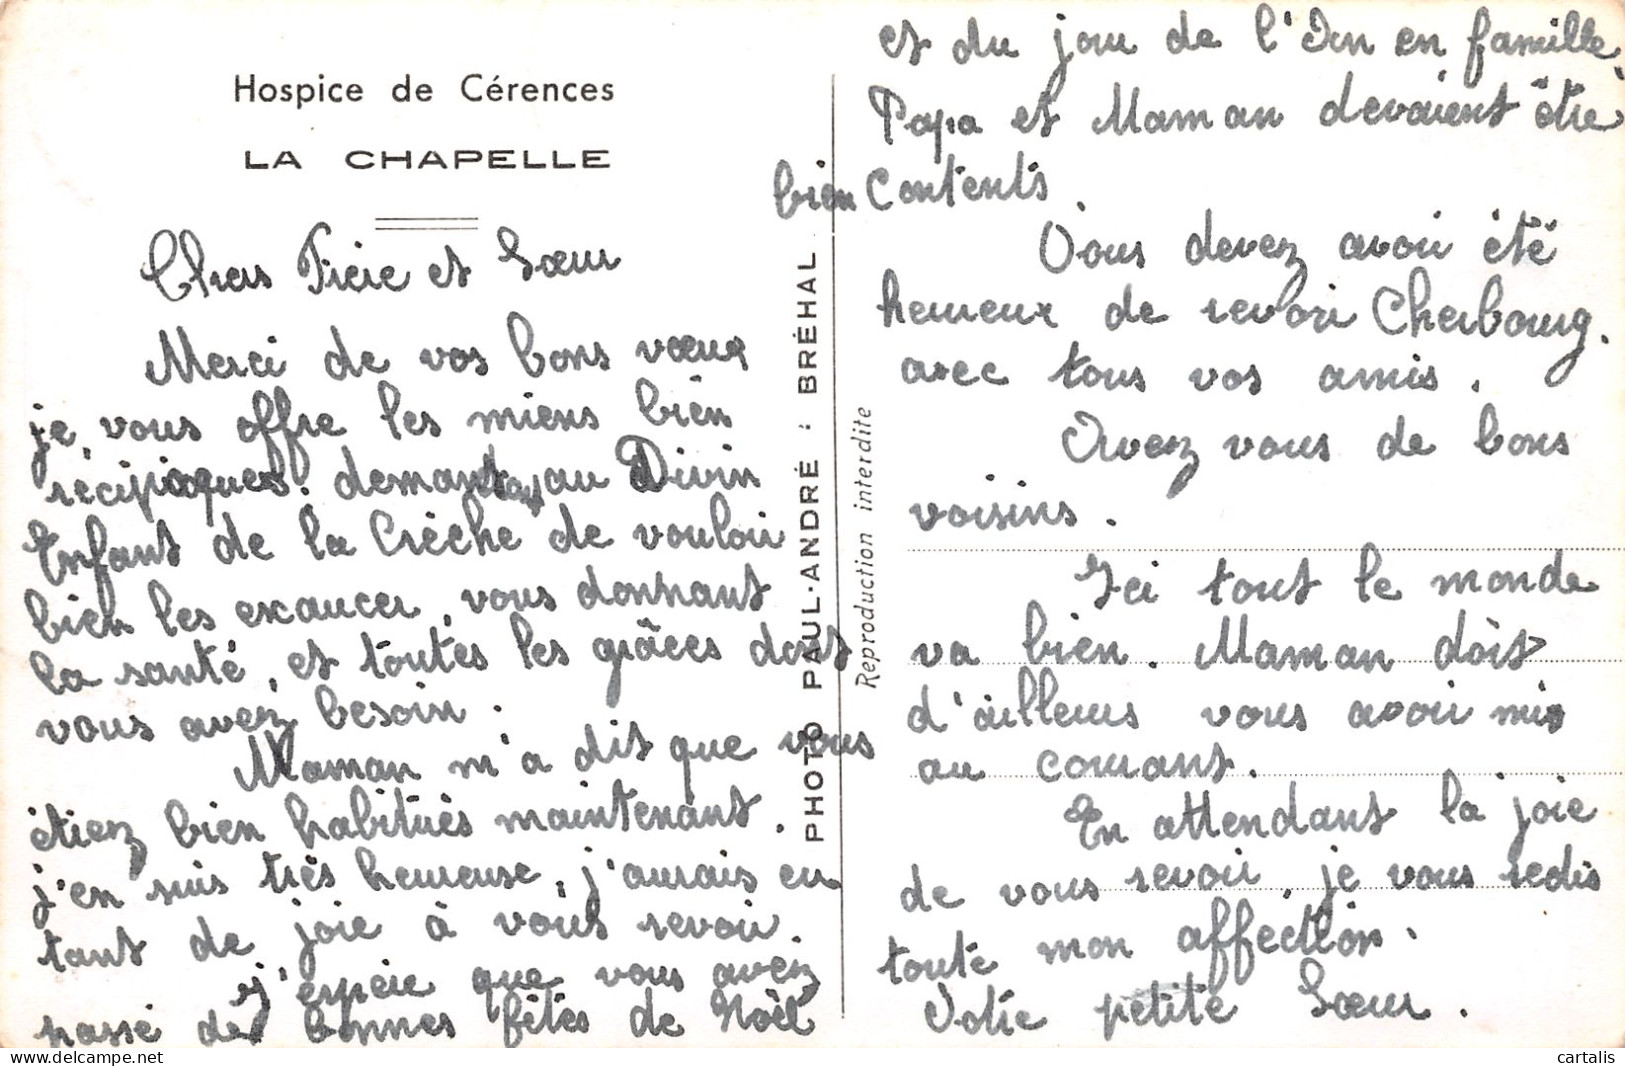 Hospice de Cérences
LA CHAPELLE
Chers Frère et Sœur
Merci de vos bons vœux
je vous offre les miens bien
réciproques. demandant au Divin
Enfant de la Crèche de vouloir
bien les exaucer, vous donnant
la santé, et toutes les grâces dont
vous avez besoin.
Maman m'a dit que vous
étiez bien habitués maintenant.
j'en suis très heureuse, j'aurais eu
tant de joie à vous revoir.
j'espère que vous avez
passé de bonnes fêtes de Noël
et du jour de l'An en famille,
Papa et Maman devaient être
bien Contents.
Vous devez avoir été
heureux de revoir Cherbourg.
avec tous vos amis.
Avez vous de bons
voisins.
Ici tout le monde
va bien. Maman doit
d'ailleurs vous avoir mis
au courant.
En attendant la joie
de vous revoir, je vous redis
toute mon affection.
Votre petite Sœur.
PHOTO PAUL-ANDRÉ : BRÉHAL
Reproduction interdite
cartalis